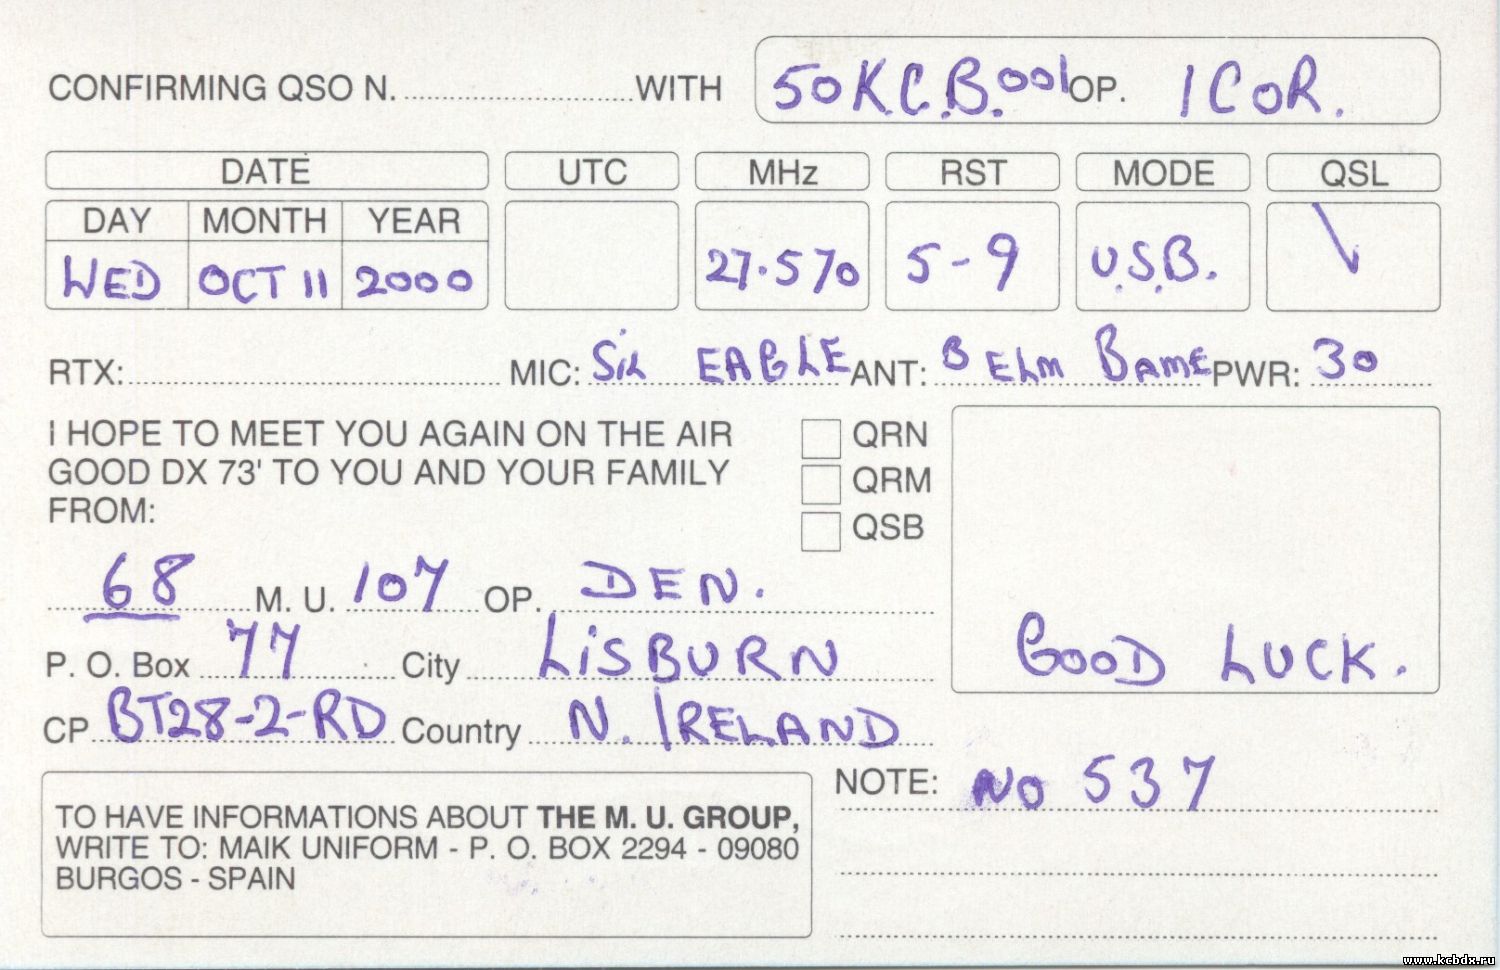 CONFIRMING QSO N. WITH 50K.C.B.001 OP. ICOR.
DATE UTC MHz RST MODE QSL
DAY MONTH YEAR
WED OCT 11 2000 27.570 5-9 U.S.B.
RTX: MIC: Sil EAGLE ANT: B ELm BAmE PWR: 30
I HOPE TO MEET YOU AGAIN ON THE AIR
GOOD DX 73' TO YOU AND YOUR FAMILY
FROM:
QRN
QRM
QSB
68 M. U. 107 OP. DEN.
P. O. Box 77 City LiSBURN
CP BT28-2-RD Country N. IRELAND
GOOD LUCK.
NOTE: NO 537
TO HAVE INFORMATIONS ABOUT THE M. U. GROUP,
WRITE TO: MAIK UNIFORM - P. O. BOX 2294 - 09080
BURGOS - SPAIN
www.kcbdx.ru